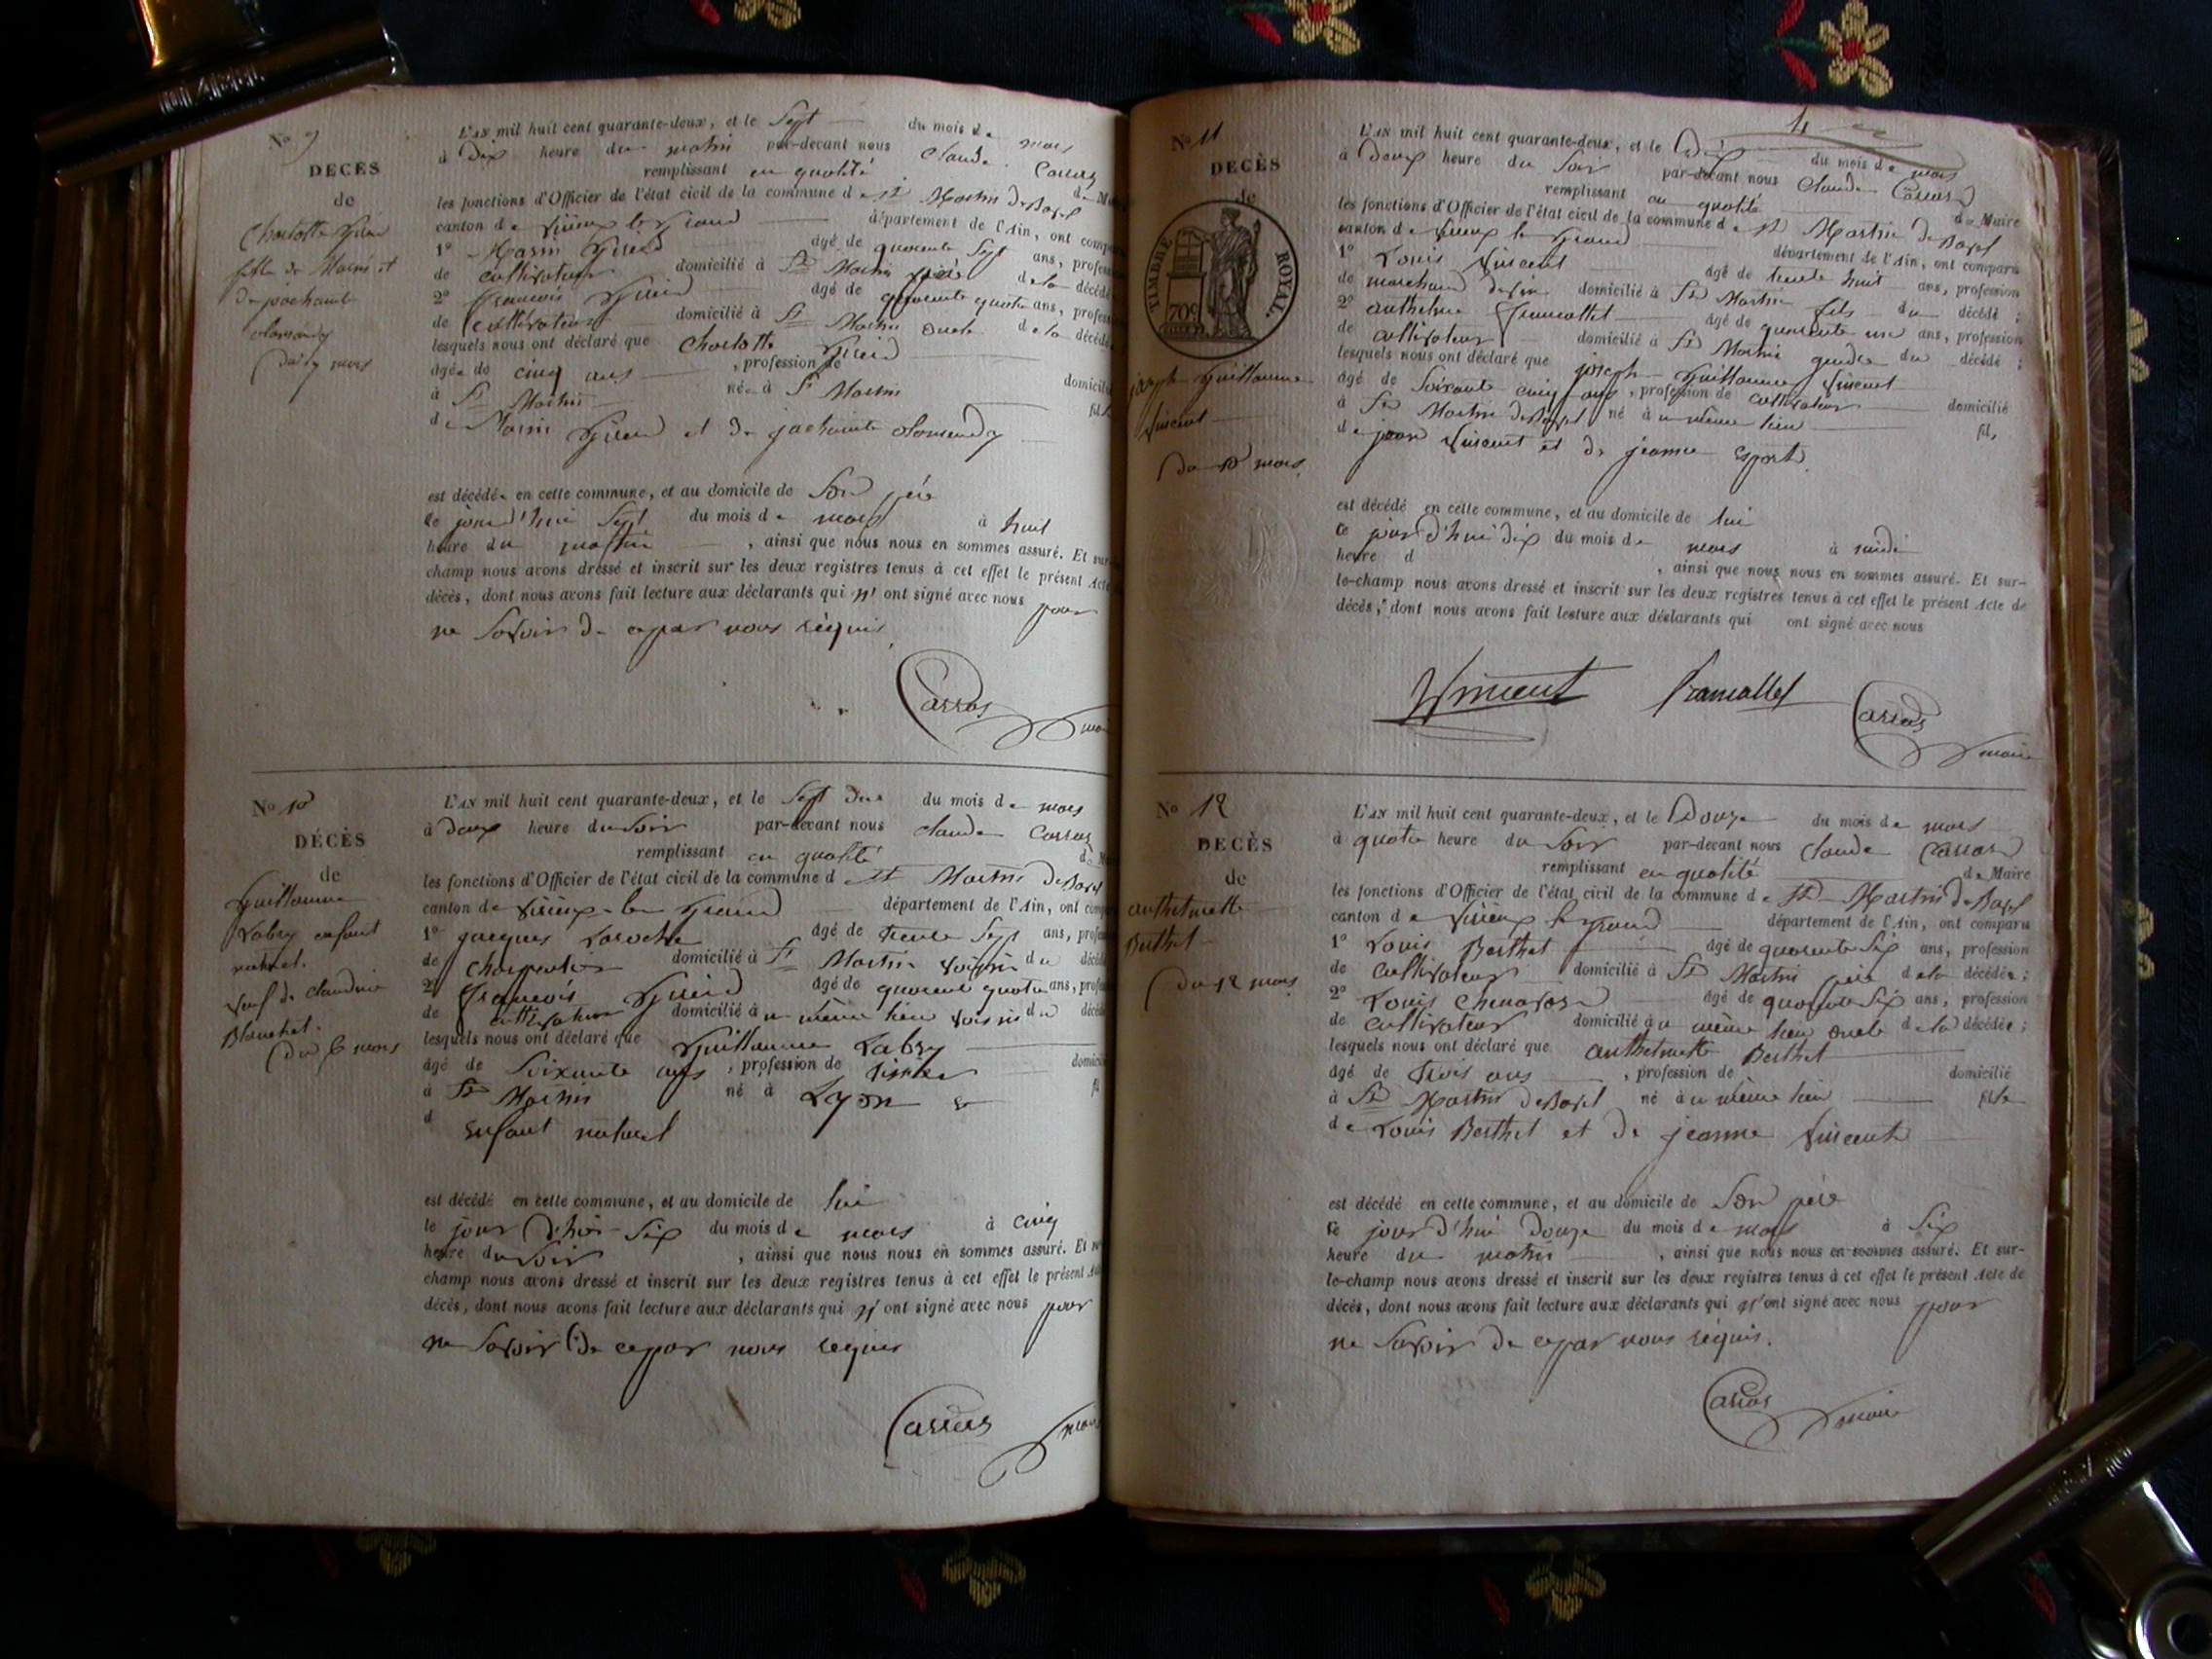 No 9
DECÈS
de
fille de Marin et
de jachainte
du 7 mars
L'AN mil huit cent quarante-deux, et le Sept du mois de mars
à Dix heure du matin par-devant nous Claude Carras
remplissant en qualité de
les fonctions d'Officier de l'état civil de la commune de St Martin de Bavel
canton de Virieux le Grand département de l'Ain, ont
1° Marin agé de quarente Sept ans,
de cultivateur domicilié à St Martin père de la décédé
2° francois agé de quarente quatre ans,
de cultivateur domicilié à St Martin oncle de la décédé
lesquels nous ont déclaré que Charlotte
agée de cinq ans , profession de
domicilié
à St Martin née à St Martin fil
de Marin et de jachainte
est décédée en cette commune, et au domicile de Son père
le jourd'hui Sept du mois de mars à huit
heure du matin , ainsi que nous nous en sommes assuré. Et sur
champ nous avons dressé et inscrit sur les deux registres tenus à cet effet le présent Acte
décès, dont nous avons fait lecture aux déclarants qui n' ont signé avec nous pour
ne Savoir de ce par nous réquis
Carras maire
No 10
DÉCÈS
de
Guillaume
Labry enfant
naturel.
veuf de claudine
Blanchet.
du 6 mars
L'AN mil huit cent quarante-deux, et le Sept du mois de mars
à Deux heure du Soir par-devant nous claude Carras
remplissant en qualité de
les fonctions d'Officier de l'état civil de la commune d St Martin de Bavel
canton de Virieux le Grand département de l'Ain, ont
1° jacques Laroche agé de trente Sept ans,
de charpentier domicilié à St Martin voisin du décédé
2° francois agé de quarente quatre ans,
de cultivateur domicilié à u même lieu voisin du décédé
lesquels nous ont déclaré que Guillaume Labry
agé de Soixante ans , profession de domicilié
à St Martin né à Lyon fi
d enfant naturel
est décédé en cette commune, et au domicile de lui
le jour d'hier Six du mois de mars à cinq
heure du Soir , ainsi que nous nous en sommes assuré. Et
champ nous avons dressé et inscrit sur les deux registres tenus à cet effet le présent
décès, dont nous avons fait lecture aux déclarants qui n' ont signé avec nous pour
ne Savoir de ce par nous requis
Carras maire
4
No 11
DECÈS
de
TIMBRE ROYAL.
70c
joseph Guillaume
Vincent
du 10 mars
L'AN mil huit cent quarante-deux, et le Dix du mois de mars
à Deux heure du Soir par-devant nous Claude Carras
remplissant en qualité de Maire
les fonctions d'Officier de l'état civil de la commune de St Martin de Bavel
canton de Virieux le Grand département de l'Ain, ont comparu
1° Louis Vincent agé de trente huit ans, profession
de marchand domicilié à St Martin fils du décédé ;
2° anthelme Francallet agé de quarente un ans, profession
de cultivateur domicilié à St Martin gendre du décédé ;
lesquels nous ont déclaré que joseph Guillaume Vincent
agé de Soixante cinq ans , profession de cultivateur domicilié
à St Martin de Bavel né à u même lieu fils
de Vincent et de jeanne
est décédé en cette commune, et au domicile de lui
ce jourd'hui dix du mois de mars à midi
heure d , ainsi que nous nous en sommes assuré. Et sur-
le-champ nous avons dressé et inscrit sur les deux registres tenus à cet effet le présent Acte de
décès, dont nous avons fait lecture aux déclarants qui ont signé avec nous
Vincent francallet Carras maire
No 12
DECÈS
de
anthelmette
Berthet
du 12 mars
L'AN mil huit cent quarante-deux, et le Douze du mois de mars
à quatre heure du Soir par-devant nous claude Carras
remplissant en qualité de Maire
les fonctions d'Officier de l'état civil de la commune de St Martin de Bavel
canton de Virieux le Grand département de l'Ain, ont comparu
1° Louis Berthet agé de quarente Six ans, profession
de cultivateur domicilié à St Martin père de la décédée ;
2° Louis agé de quarente Six ans, profession
de cultivateur domicilié à u même lieu oncle de la décédée ;
lesquels nous ont déclaré que anthelmette Berthet
agé de trois ans , profession de domicilié
à St Martin de Bavel né à u même lieu fille
de Louis Berthet et de jeanne Vincent
est décédé en cette commune, et au domicile de Son père
ce jourd'hui Douze du mois de mars à Six
heure du matin , ainsi que nous nous en sommes assuré. Et sur-
le-champ nous avons dressé et inscrit sur les deux registres tenus à cet effet le présent Acte de
décès, dont nous avons fait lecture aux déclarants qui n'ont signé avec nous pour
ne Savoir de ce par nous réquis.
Carras maire